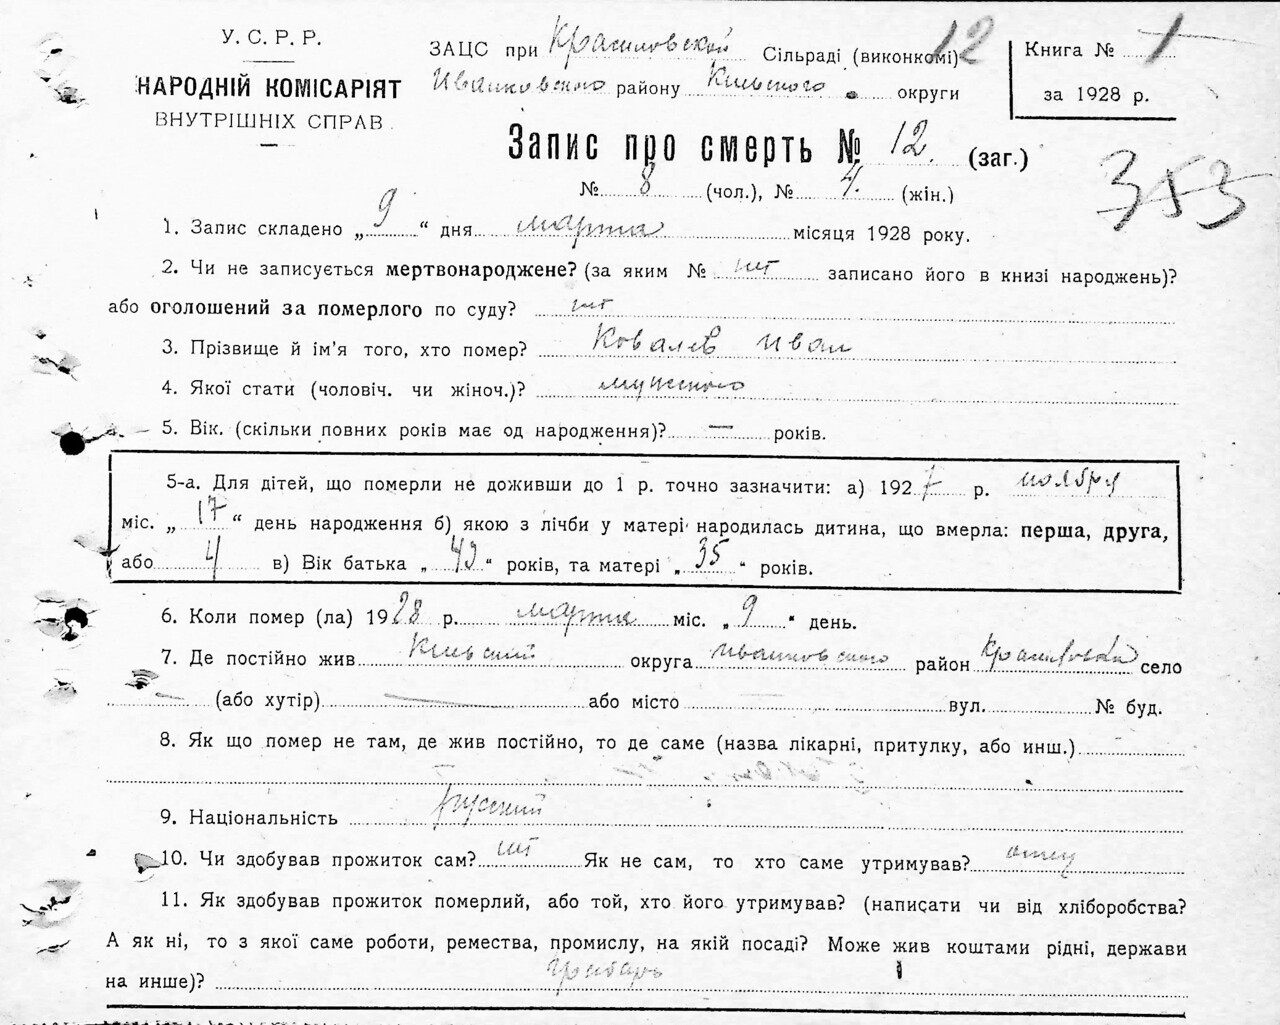 У. С. Р. Р.
НАРОДНІЙ КОМІСАРІЯТ
ВНУТРІШНІХ СПРАВ
ЗАЦС при Красиловской Сільраді (виконкомі) 12
Иванковского району Киевского округи
Книга № 1
за 1928 р.
Запис про смерть № 12. (заг.)
№ 8 (чол.), № 4. (жін.)
353
1. Запис складено „ 9 “ дня марта місяця 1928 року.
2. Чи не записується мертвонароджене? (за яким № нет записано його в книзі народжень)?
або оголошений за померлого по суду? нет
3. Прізвище й ім'я того, хто помер? Ковалев Иван
4. Якої стати (чоловіч. чи жіноч.)? мужского
5. Вік. (скільки повних років має од народження)? — років.
5-а. Для дітей, що померли не доживши до 1 р. точно зазначити: а) 1927 р. ноября
міс. „ 17 “ день народження б) якою з лічби у матері народилась дитина, що вмерла: перша, друга,
або 4 в) Вік батька „ 42 “ років, та матері „ 35 “ років.
6. Коли помер (ла) 1928 р. марта міс. „ 9 “ день.
7. Де постійно жив Киевский округа Иванковского район Красиловка село
— (або хутір) — або місто вул. № буд.
8. Як що помер не там, де жив постійно, то де саме (назва лікарні, притулку, або инш.)
9. Національність русский
10. Чи здобував прожиток сам? нет Як не сам, то хто саме утримував? отец
11. Як здобував прожиток померлий, або той, хто його утримував? (написати чи від хліборобства?
А як ні, то з якої саме роботи, ремества, промислу, на якій посаді? Може жив коштами рідні, держави
на инше)? грабарь